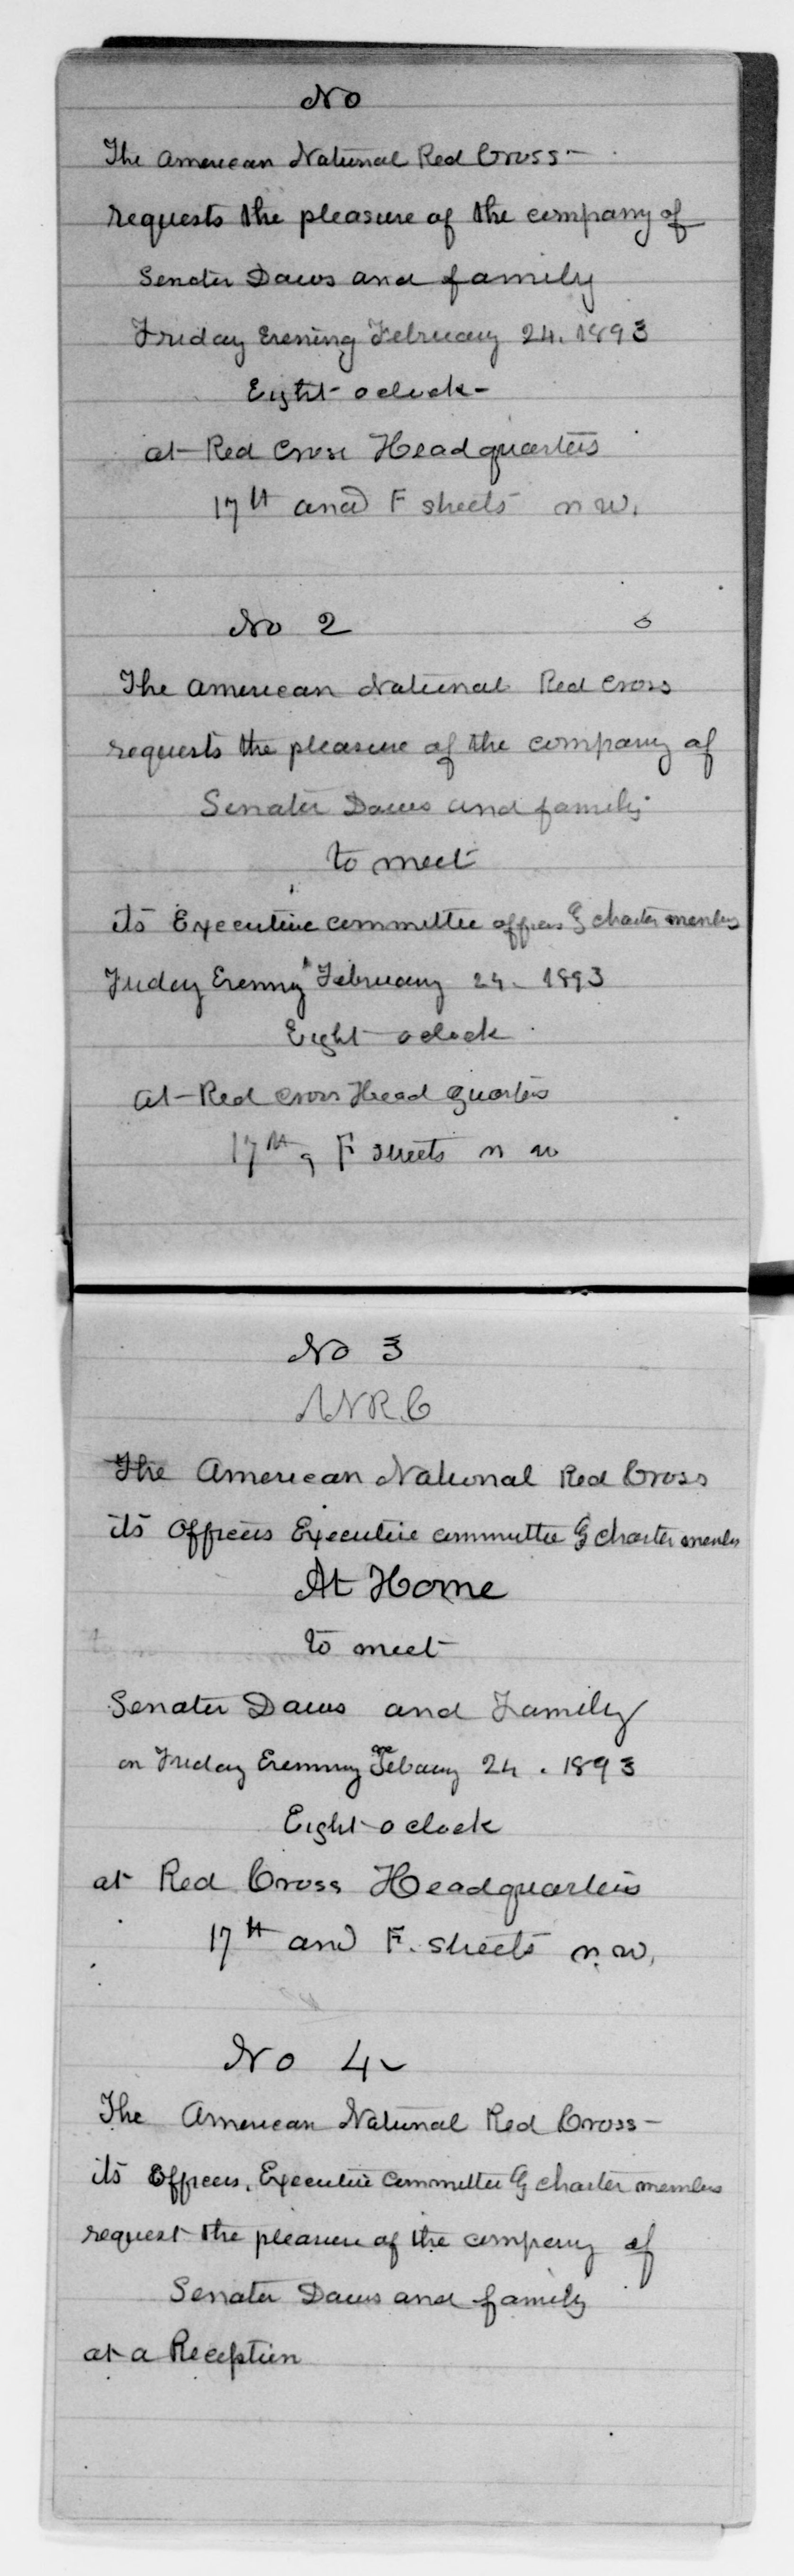 No
The American National Red Cross -
requests the pleasure of the company of
Senator Daws and family
Friday Evening February 24. 1893
Eight - o clock -
at Red Cross Headquarters
17th and F streets n w.
No 2
The American National Red Cross
requests the pleasure of the company of
Senator Daws and family
to meet
its Executive committee officers & charter members
Friday Evening February 24 - 1893
Eight o clock
at - Red Cross Head quarters
17th & F streets n w
No 3
ANRC
The American National Red Cross
its Officers Executive committee & charter members
At Home
to meet
Senator Daws and Family
on Friday Evening Febauy 24 . 1893
Eight o clock
at Red Cross Headquarters
17th and F. streets n. w.
No 4
The American National Red Cross -
its Officers, Executive Committee & charter members
request the pleasure of the company of
Senator Daws and family
at a Reception